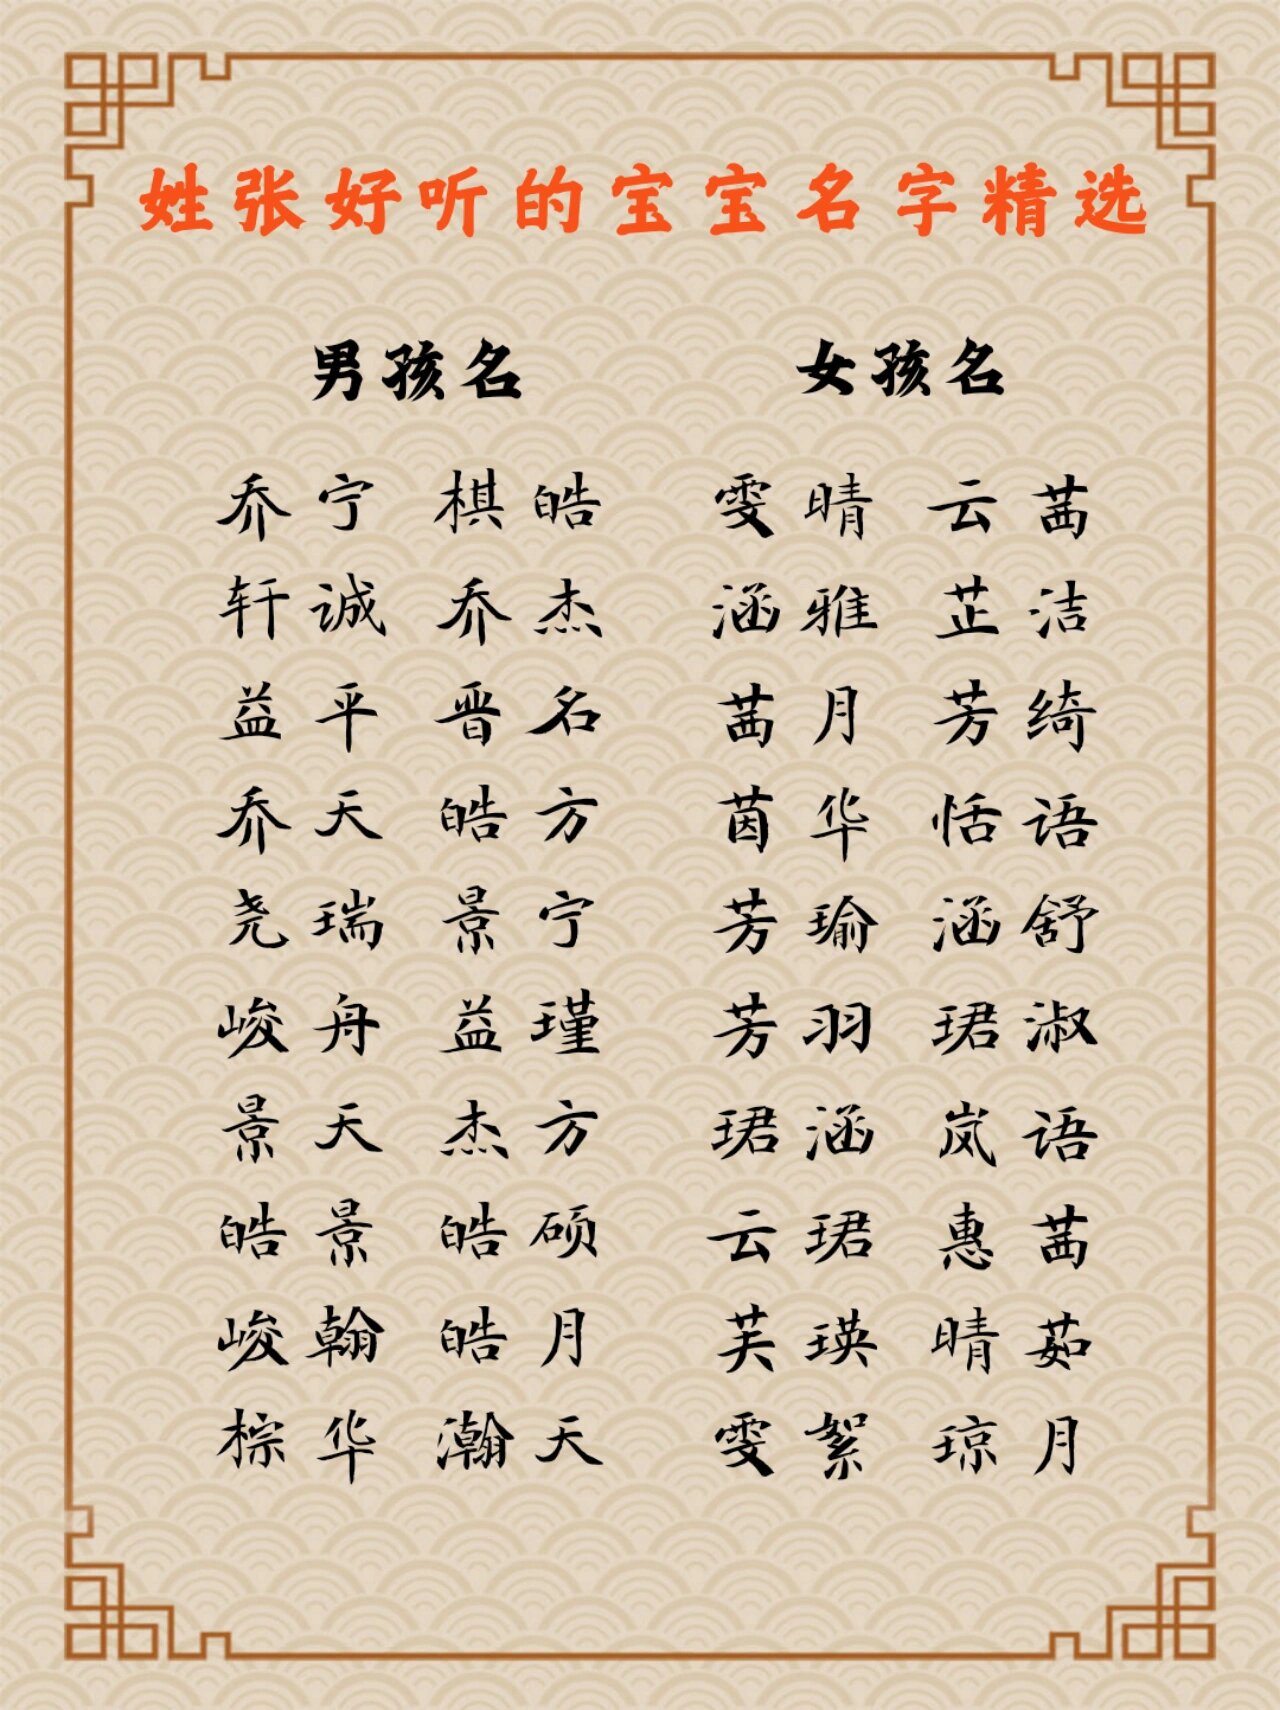 姓张好听的宝宝名字精选
男孩名 女孩名
乔宁 棋皓 雯晴 云茜
轩诚 乔杰 涵雅 芷洁
益平 晋名 茜月 芳绮
乔天 皓方 茵华 恬语
尧瑞 景宁 芳瑜 涵舒
峻舟 益瑾 芳羽 珺淑
景天 杰方 珺涵 岚语
皓景 皓硕 云珺 惠茜
峻翰 皓月 芙瑛 晴茹
棕华 瀚天 雯絮 琼月